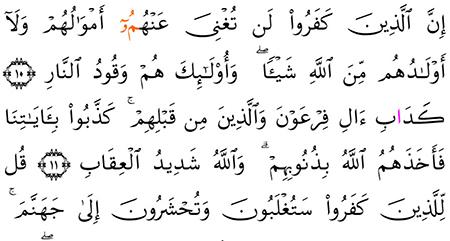 إِنَّ ٱلَّذِينَ كَفَرُوا۟ لَن تُغْنِىَ عَنْهُمُۥٓ أَمْوَٰلُهُمْ وَلَآ
أَوْلَـٰدُهُم مِّنَ ٱللَّهِ شَيْـًٔا ۖ وَأُو۟لَـٰٓئِكَ هُمْ وَقُودُ ٱلنَّارِ ١٠
كَدَابِ ءَالِ فِرْعَوْنَ وَٱلَّذِينَ مِن قَبْلِهِمْ ۚ كَذَّبُوا۟ بِـَٔايَـٰتِنَا
فَأَخَذَهُمُ ٱللَّهُ بِذُنُوبِهِمْ ۗ وَٱللَّهُ شَدِيدُ ٱلْعِقَابِ ١١ قُل
لِّلَّذِينَ كَفَرُوا۟ سَتُغْلَبُونَ وَتُحْشَرُونَ إِلَىٰ جَهَنَّمَ ۚ